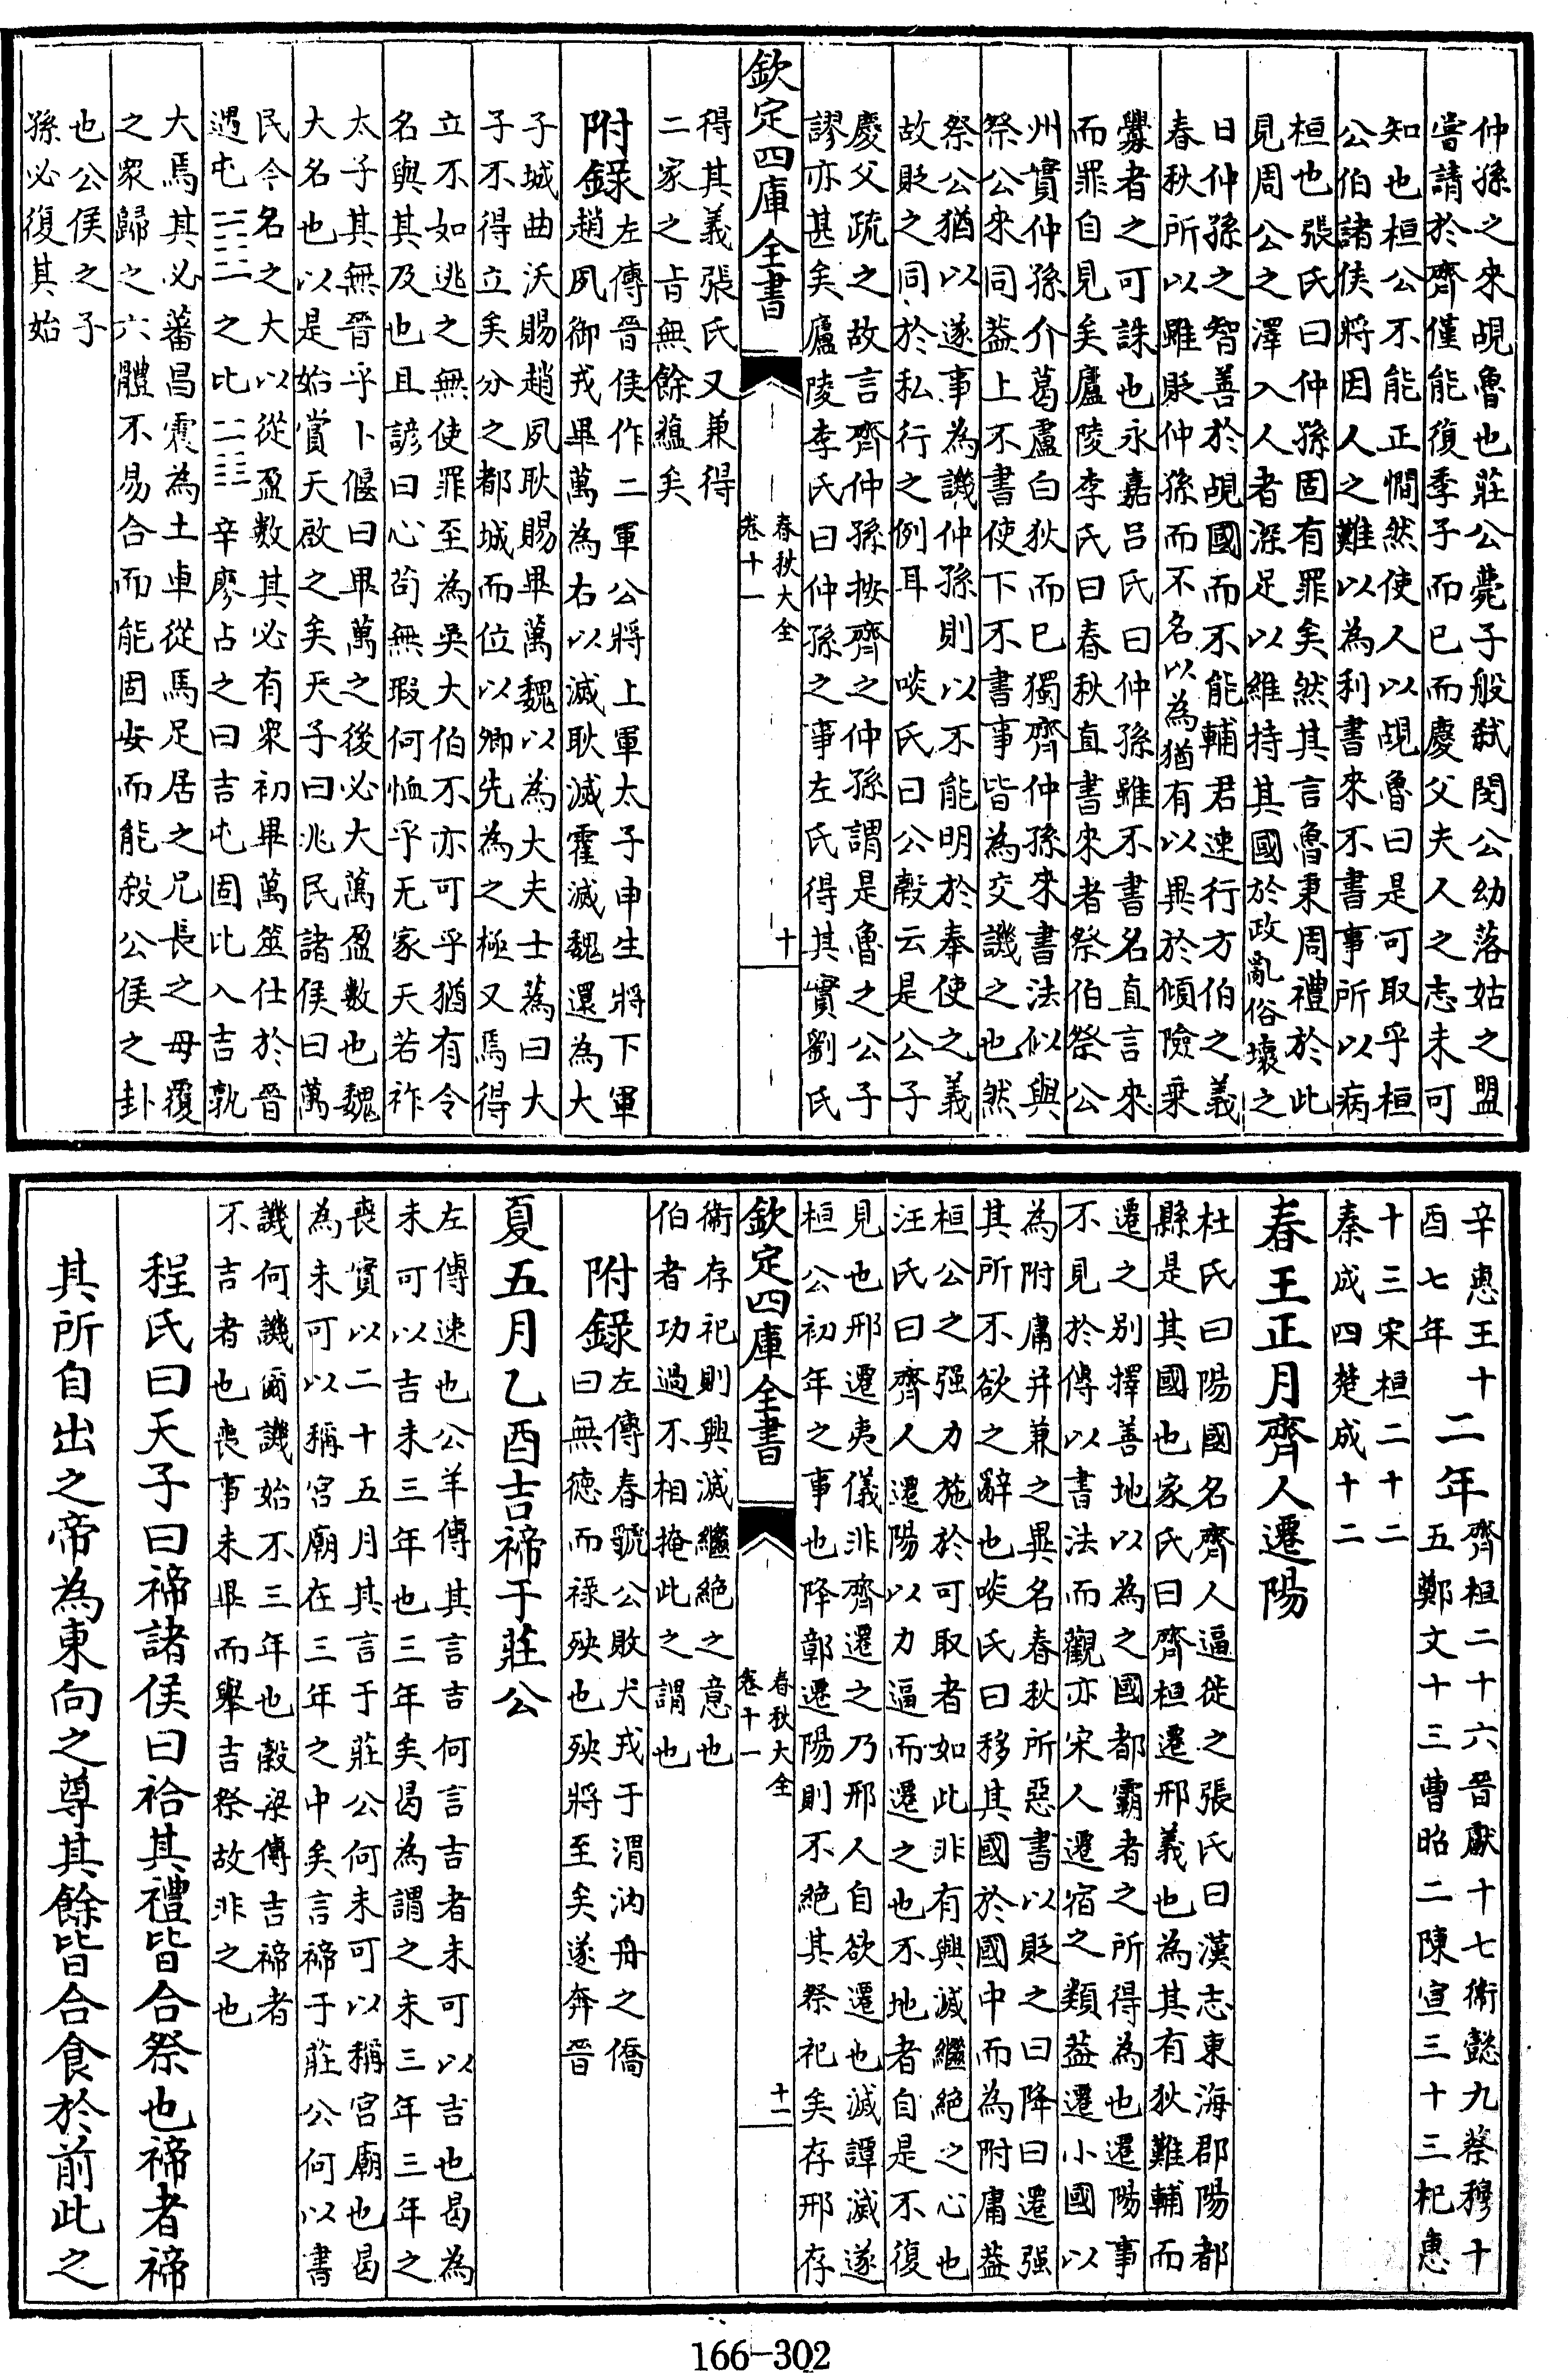 仲孫之來覘魯也莊公薨子般弑閔公幼落姑之盟
嘗請於齊僅能復季子而已而慶父夫人之志未可
知也桓公不能正憪然使人以覘魯曰是可取乎桓
公伯諸侯將因人之難以為利書來不書事所以病
桓也張氏曰仲孫固有罪矣然其言魯秉周禮於此
見周公之澤入人者深足以維持其國於政亂俗壞之
日仲孫之智善於覘國而不能輔君速行方伯之義
春秋所以雖貶仲孫而不名以為猶有以異於傾險乗
釁者之可誅也永嘉呂氏曰仲孫雖不書名直言來
而罪自見矣廬陵李氏曰春秋直書來者祭伯祭公
州實仲孫介葛盧白狄而已獨齊仲孫來書法似與
祭公來同葢上不書使下不書事皆為交譏之也然
祭公猶以遂事為譏仲孫則以不能明於奉使之義
故貶之同於私行之例耳　啖氏曰公穀云是公子
慶父疏之故言齊仲孫按齊之仲孫謂是魯之公子
謬亦甚矣廬陵李氏曰仲孫之事左氏得其實劉氏
欽定四庫全書
春秋大全
卷十一
十
得其義張氏又兼得
二家之㫖無餘藴矣
附錄
左傳晉侯作二軍公將上軍太子申生將下軍
趙夙御戎畢萬為右以滅耿滅霍滅魏還為大
子城曲沃賜趙夙耿賜畢萬魏以為大夫士蔿曰大
子不得立矣分之都城而位以卿先為之極又焉得
立不如逃之無使罪至為吳大伯不亦可乎猶有令
名與其及也且諺曰心茍無瑕何恤乎无家天若祚
太子其無晉乎卜偃曰畢萬之後必大萬盈數也魏
大名也以是始賞天啟之矣天子曰兆民諸侯曰萬
民今名之大以從盈數其必有衆初畢萬筮仕於晉
遇屯䷂之比䷇辛廖占之曰吉屯固比入吉孰
大焉其必蕃昌震為土車從馬足居之兄長之母覆
之衆歸之六體不易合而能固安而能殺公侯之卦
也公侯之子
孫必復其始
辛惠王十
酉七年
二年
齊桓二十六晉獻十七衛懿九蔡穆十
五鄭文十三曹昭二陳宣三十三杞惠
十三宋桓二十二
秦成四楚成十二
春王正月齊人遷陽
杜氏曰陽國名齊人逼徙之張氏曰漢志東海郡陽都
縣是其國也家氏曰齊桓遷邢義也為其有狄難輔而
遷之别擇善地以為之國都霸者之所得為也遷陽事
不見於傳以書法而觀亦宋人遷宿之類葢遷小國以
為附庸并兼之異名春秋所惡書以貶之曰降曰遷强
其所不欲之辭也啖氏曰移其國於國中而為附庸葢
桓公之强力施於可取者如此非有興滅繼絶之心也
汪氏曰齊人遷陽以力逼而遷之也不地者自是不復
見也邢遷夷儀非齊遷之乃邢人自欲遷也滅譚滅遂
桓公初年之事也降鄣遷陽則不絶其祭祀矣存邢存
欽定四庫全書
春秋大全
卷十一
十一
衛存祀則興滅繼絶之意也
伯者功過不相掩此之謂也
附錄
左傳春虢公敗犬戎于渭汭舟之僑
曰無德而祿殃也殃將至矣遂奔晉
夏五月乙酉吉禘于莊公
左傳速也公羊傳其言吉何言吉者未可以吉也曷為
未可以吉未三年也三年矣曷為謂之未三年三年之
喪實以二十五月其言于莊公何未可以稱宮廟也曷
為未可以稱宮廟在三年之中矣言禘于莊公何以書
譏何譏爾譏始不三年也穀梁傳吉禘者
不吉者也喪事未畢而舉吉祭故非之也
程氏曰天子曰禘諸侯曰祫其禮皆合祭也禘者禘
其所自出之帝為東向之尊其餘皆合食於前此之
166-302